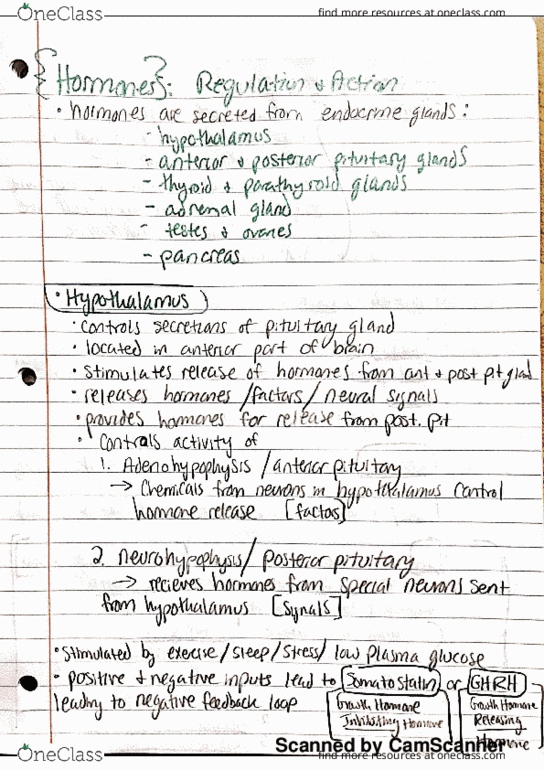 OneClass
find more resources at oneclass.com
{Hormones}: Regulation & Action
• hormones are secreted from endocrine glands:
- hypothalamus
- anterior & posterior pituitary glands
- thyroid & parathyroid glands
- adrenal gland
- testes & ovaries
- pancreas
• Hypothalamus
• controls secretions of pituitary gland
• located in anterior part of brain
• stimulates release of hormones from ant & post pit gland
• releases hormones /factors/ neural signals
• provides hormones for release from post. pit
• Controls activity of
1. Adenohypophysis /anterior pituitary
→ Chemicals from neurons in hypothalamus control
hormone release [factors]
2. neurohypophysis/ posterior pituitary
→ recieves hormones from special neurons sent
from hypothalamus [Synals]
• Stimulated by exercise/sleep/stress/ low plasma glucose
• positive & negative inputs lead to Somatostatin or GHRH
leading to negative feedback loop
Growth Hormone
Inhibiting Hormone
Growth Hormone
Releasing
Hormone
Scanned by CamScanner
OneClass
find more resources at oneclass.com